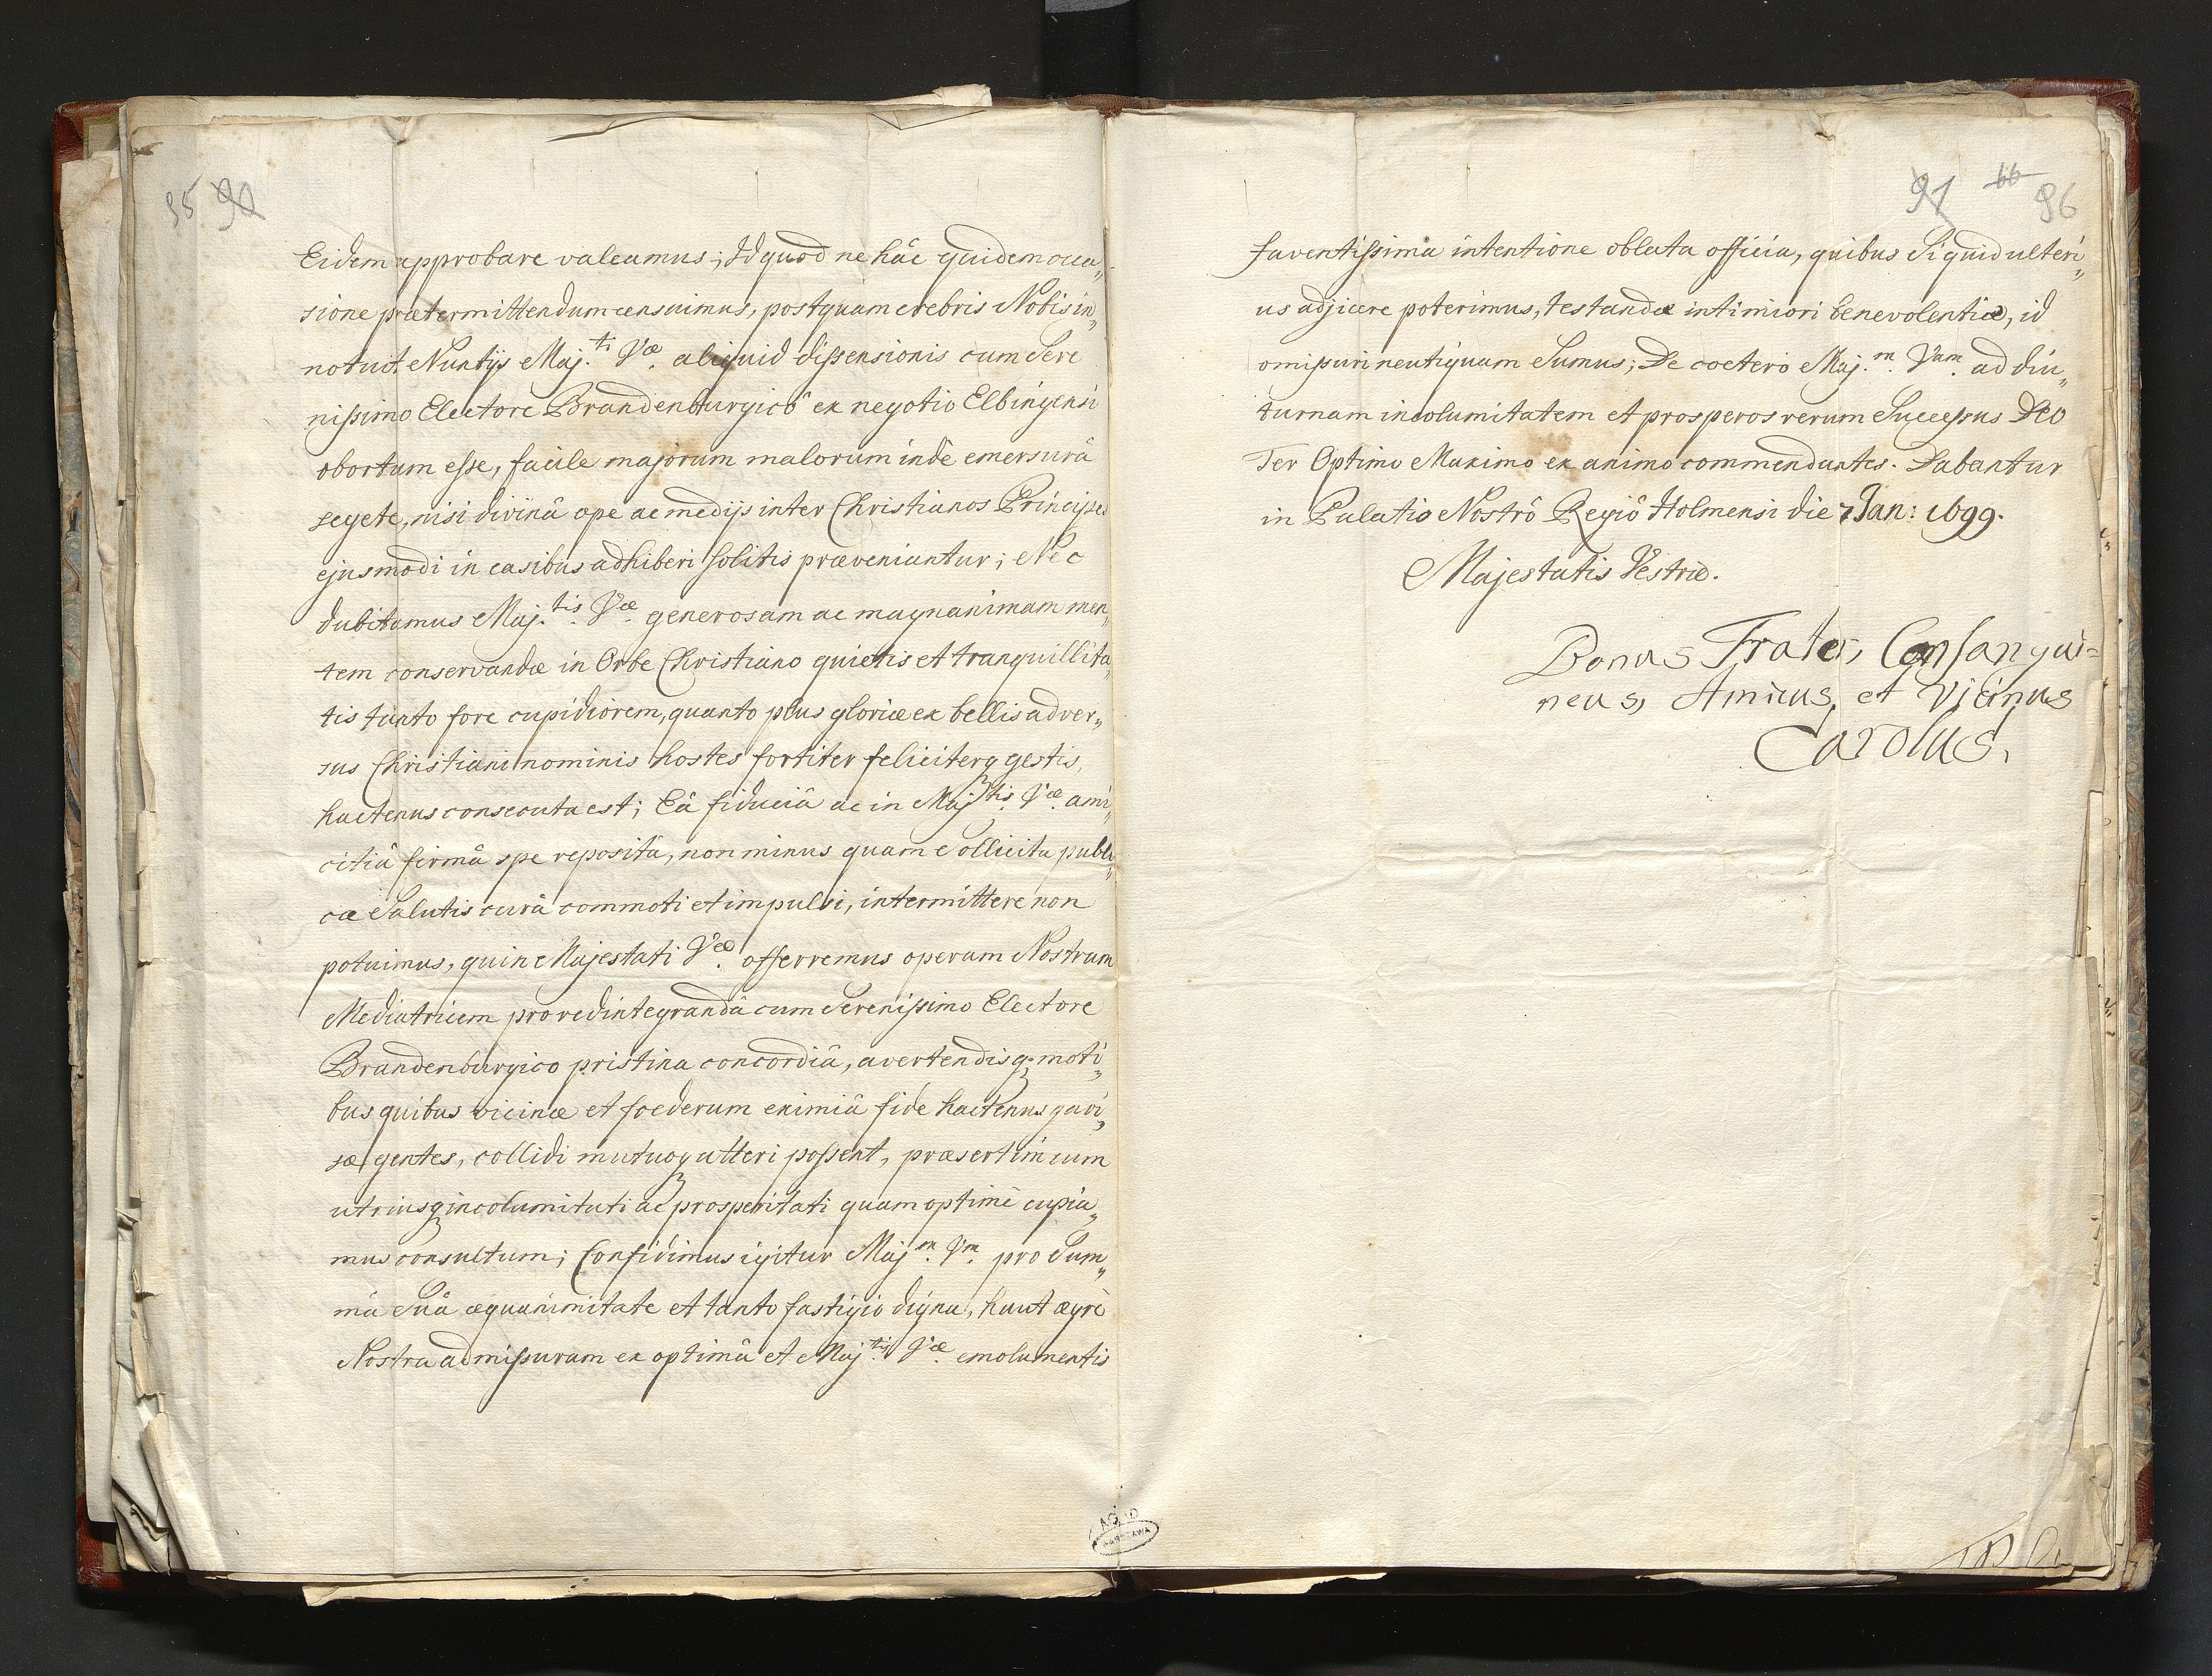 95 90
Eidem approbare valeamus; Id quod ne hâc quidem occa„
sione prætermittendum censuimus, postquam crebris Nobis in„
notuit Nuntijs Maj.ti Væ. aliquid dissensionis cum Sere
nissimo Electore Brandenburgicô ex negotio Elbingensi
obortum esse, facile majorum malorum indè emersurâ
segete, nisi divinâ ope ac medijs inter Christianos Principes
ejusmodi in casibus adhiberi solitis præveniantur; Nec
dubitamus Maj.tis Væ. generosam ac magnanimam men„
tem conservandæ in Orbe Christiano quietis et tranquillita„
tis tanto fore cupidiorem, quanto plus gloriæ ex bellis adver„
sus Christiani nominis hostes fortiter feliciterq gestis,
hactenus consecuta est; Eâ fiduciâ ac in Maj.tis Væ. ami„
citiâ firmâ spe repositâ, non minus quam Sollicita publi„
cæ Salutis curâ commoti et impulsi, intermittere non
potuimus, quin Majestati Væ. offerremus operam Nostram
Mediatricem pro redintegrandâ cum Serenissimo Electore
Brandenburgico pristina concordiâ, avertendisq; moti„
bus quibus vicinæ et foederum eximiâ fide hactenus gavi„
sæ gentes, collidi mutuoq atteri possent, præsertim cum
utriusq incolumitati ac prosperitati quam optimè cupia„
mus consultum; Confidimus igitur Maj.m Vm. pro Sum„
mâ Suâ æquanimitate et tanto fastigio digna, haut ægrè
Nostra admissuram ex optimâ et Maj.tis Væ. emolumentis
91 66 96
faventissima intentione oblata officia, quibus Si quid ulteri„
us adjicere poterimus, testandæ intimiori benevolentiæ, id
omissuri neutiquam Sumus; De coetero Maj.m Vam. ad diu„
turnam incolumitatem et prosperos rerum Successus Deo
Ter Optimo Maximo ex animo commendantes. Dabantur
in Palatio Nostrô Regiô Holmensi die 7 Jan: 1699.
Majestatis Vestræ.
Bonus Frater, Consangui=
neus, Amicus, et Vicinus
Carolus.
AGAD
WARSZAWA